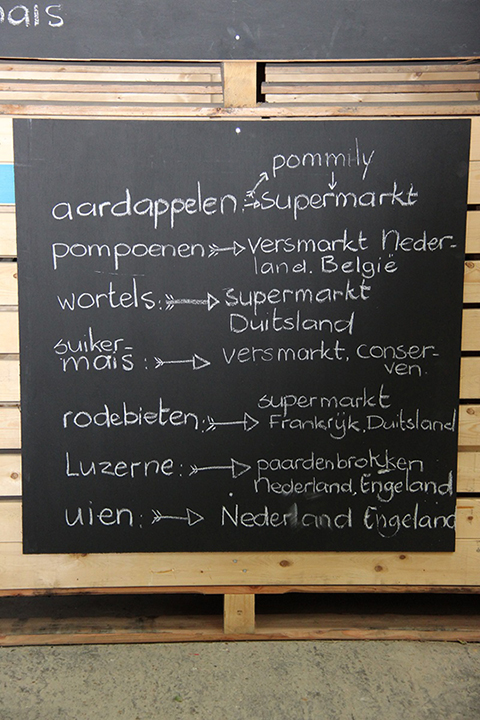 mais
pommily
aardappelen: supermarkt
pompoenen versmarkt Neder-
land. België
wortels: supermarkt
Duitsland
suiker-
mais: versmarkt, conser-
ven.
supermarkt
rodebieten: Frankrijk, Duitsland
Luzerne: paardenbrokken
Nederland, Engeland
uien: Nederland Engeland